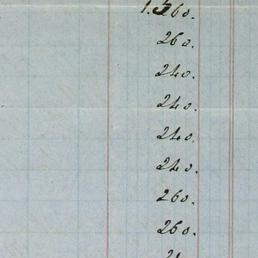 260.
260.
240.
240.
240.
240.
260.
260.